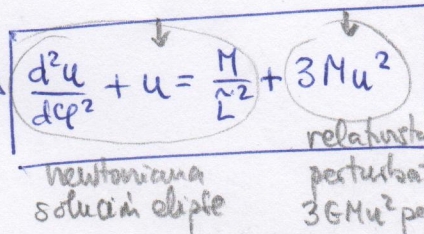 d²u/dφ² + u = M/L̃² + 3Mu²
newtoniana
solución elipse
relativista
perturba
3GMu² pe